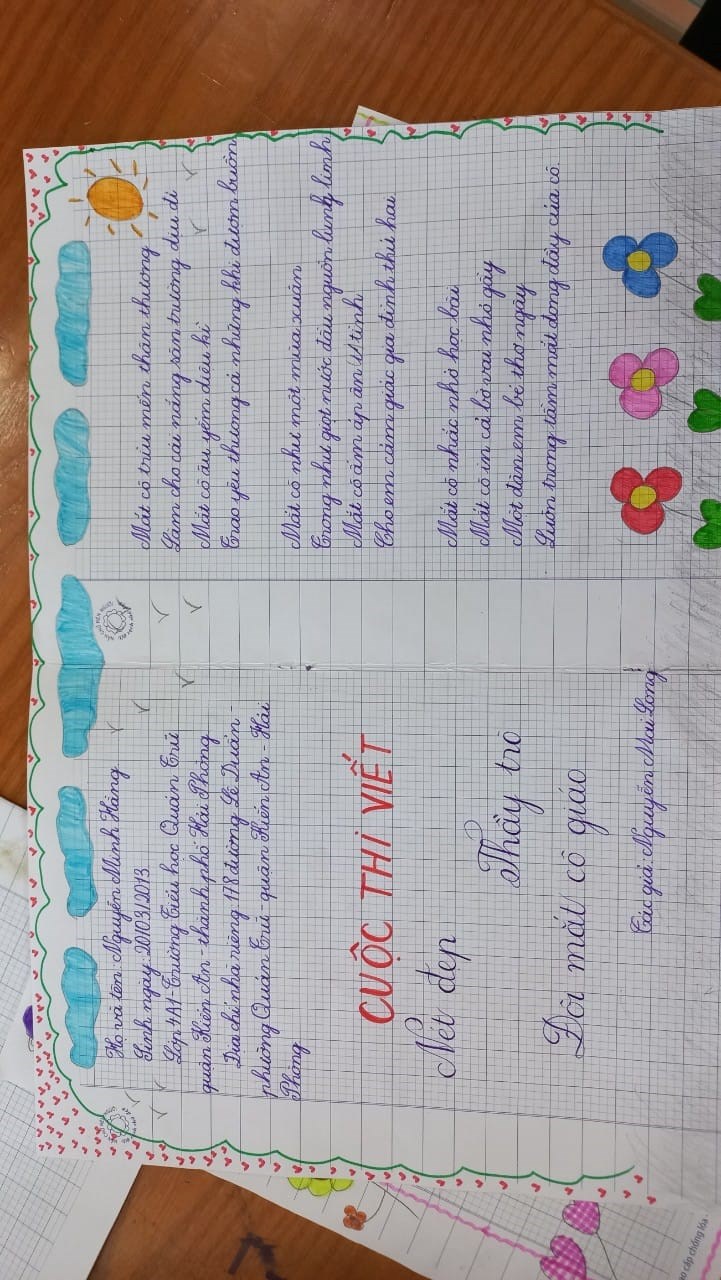 Họ và tên: Nguyễn Minh Hằng
Sinh ngày: 20/09/2013
Lớp 4A1 - Trường Tiểu học Quán Trữ
quận Kiến An - thành phố Hải Phòng
Địa chỉ nhà riêng: 178 đường Lê Duẩn -
phường Quán Trữ - quận Kiến An - Hải
Phòng
CUỘC THI VIẾT
Nét đẹp
Thầy trò
Đôi mắt cô giáo
Tác giả: Nguyễn Mai Long
Mắt cô trìu mến thân thương
Làm cho cái nắng sân trường dịu đi
Mắt cô âu yếm diệu kì
Trao yêu thương cả những khi đượm buồn
Mắt cô như một mùa xuân
Trong như giọt nước đầu nguồn lung linh
Mắt cô ấm áp ân tình
Cho em cảm giác gia đình thứ hai
Mắt cô nhắc nhở học bài
Mắt cô in cả bờ vai nhỏ gầy
Một đàn em bé thơ ngây
Luôn trong tầm mắt đong đầy của cô
cấp chống lóa